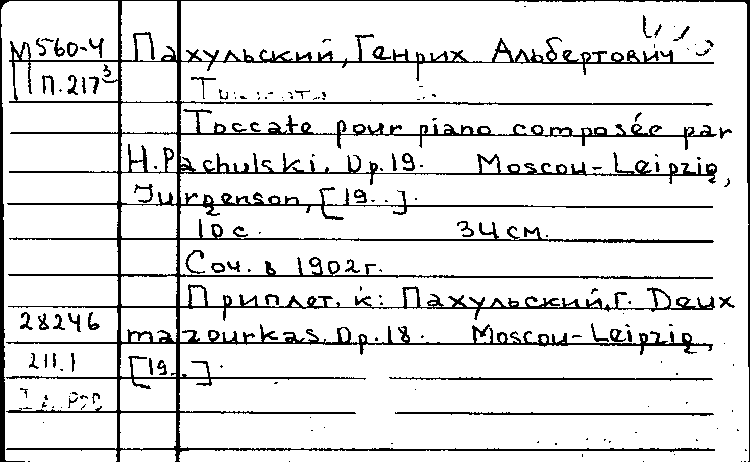 М 560-4 Пахульский, Генрих Альбертович
П п.217³
Toccate pour piano composée par
H. Pachulski. Op. 19. Moscou-Leipzig,
Jurgenson, [19..].
10 с. 34 см.
Соч. в 1902 г.
Приплет. к: Пахульский, Г. Deux
28246 mazourkas. Op. 18. Moscou-Leipzig,
211.1 [19..].